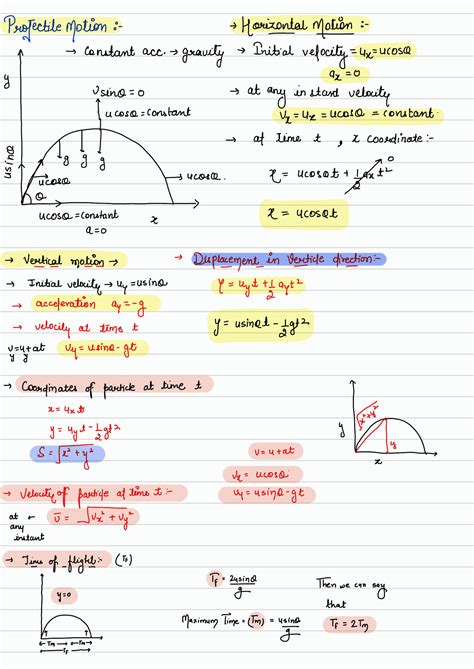 Projectile Motion :-
→ Constant acc. → gravity
y
v sinθ = 0
ucosθ = constant
g g g
usinθ
ucosθ
→ ucosθ.
θ
ucosθ = constant
a = 0
x
→ Horizontal Motion :-
→ Initial velocity = uₓ = ucosθ
aₓ = 0
→ at any instand velocity
vₓ = uₓ = ucosθ = constant
→ at time t, x coordinate :-
x = ucosθt + 1/2 aₓt² 0
x = ucosθt
→ Vertical motion →
→ Initial velocity → u_y = usinθ
→ acceleration a_y = -g
→ velocity at time t
v_y = u_y + at
v_y = usinθ - gt
→ Displacement in verticle direction:-
y = u_y t + 1/2 a_y t²
y = usinθt - 1/2 gt²
→ Coordinates of particle at time t
x = uₓt
y = u_y t - 1/2 gt²
S = √x² + y²
√x²+y²
y
y
x
v = u + at
vₓ = ucosθ
v_y = usinθ - gt
→ Velocity of particle at time t :-
at any instant ← v = √vₓ² + v_y²
→ Time of flight:- (T_f)
y = 0
← Tm → ← Tm →
T_f
T_f = 2usinθ/g
Maximum Time = (Tm) = usinθ/g
Then we can say
that
T_f = 2Tm